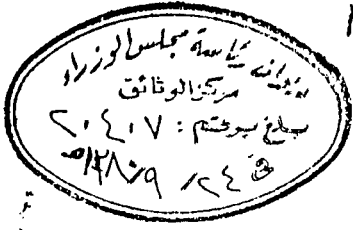 ديوان رئاسة مجلس الوزراء
مركز الوثائق
بلغ برقم : ٢٠٤٠٧
في ٢٤ / ٩ / ١٣٨٠هـ